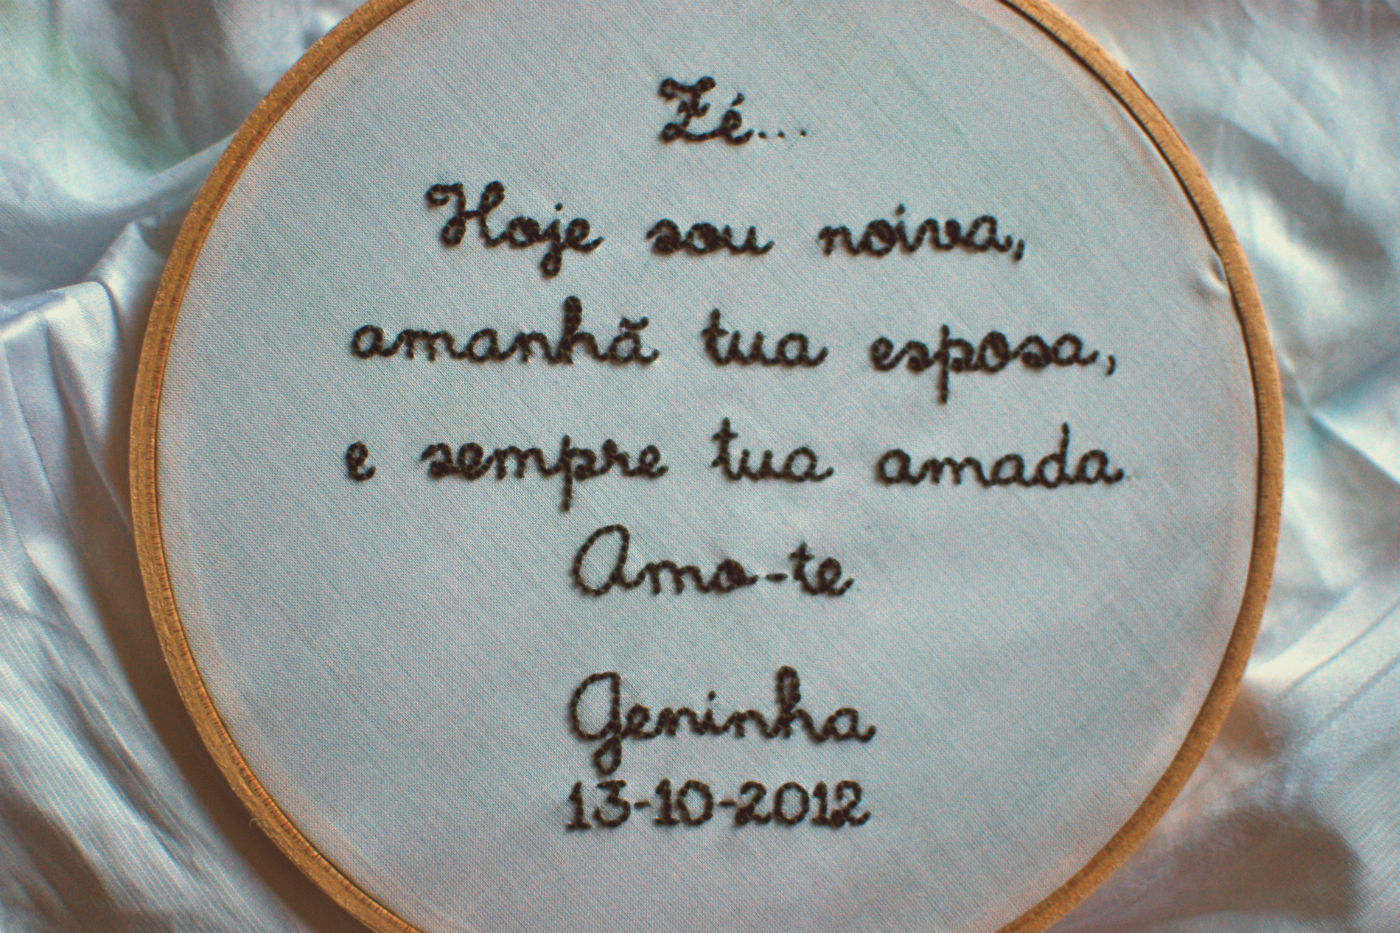 Zé...
Hoje sou noiva,
amanhã tua esposa,
e sempre tua amada
Amo-te
Geninha
13-10-2012